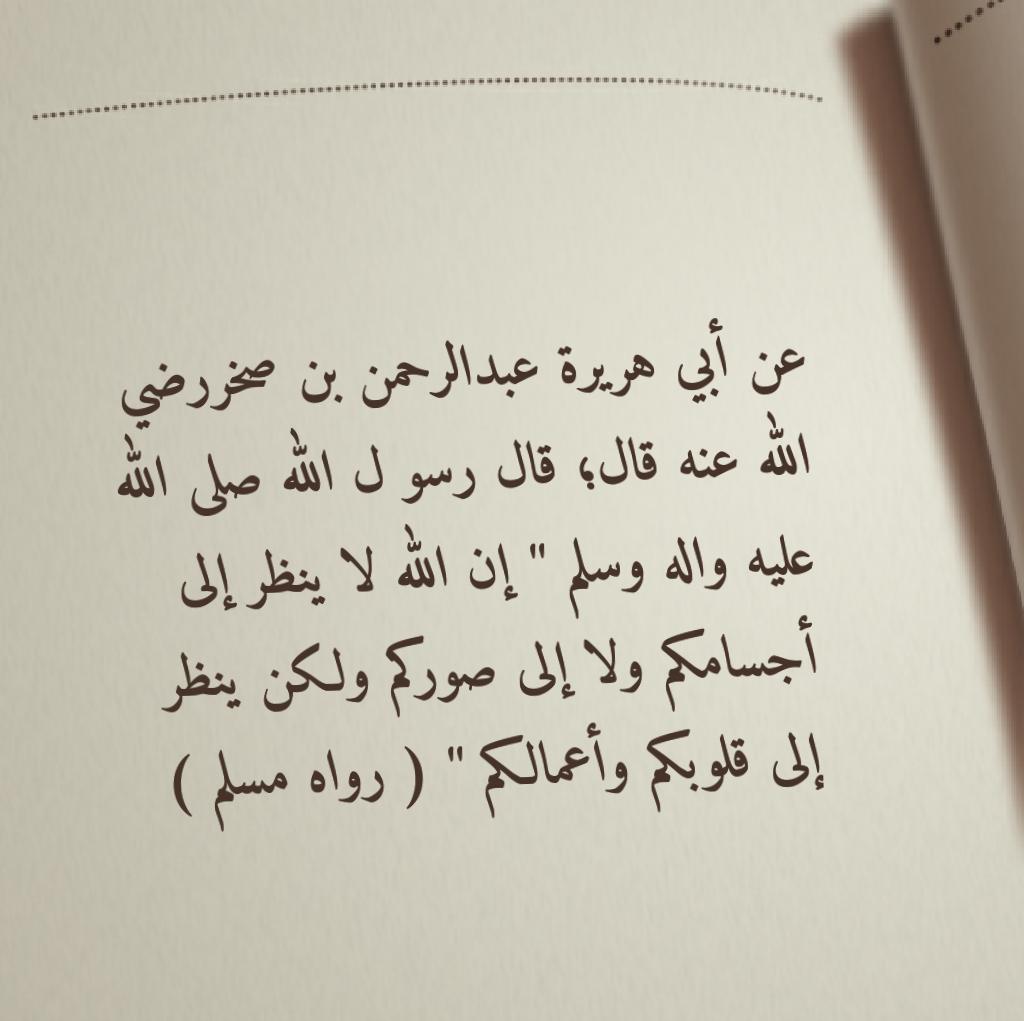 عن أبي هريرة عبدالرحمن بن صخررضي
الله عنه قال؛ قال رسو ل الله صلى الله
عليه واله وسلم " إن الله لا ينظر إلى
أجسامكم ولا إلى صوركم ولكن ينظر
إلى قلوبكم وأعمالكم " ( رواه مسلم )